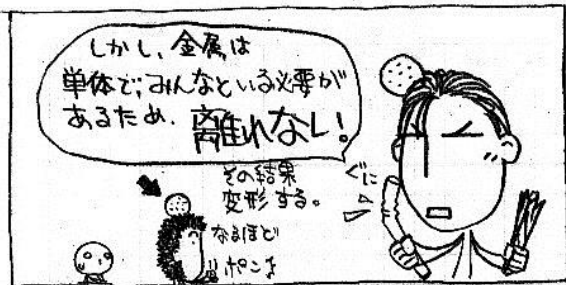 しかし、金属は
単体で、みんなといる必要が
あるため、離れなし!
その結果
変形する。
ぐに
なるほど